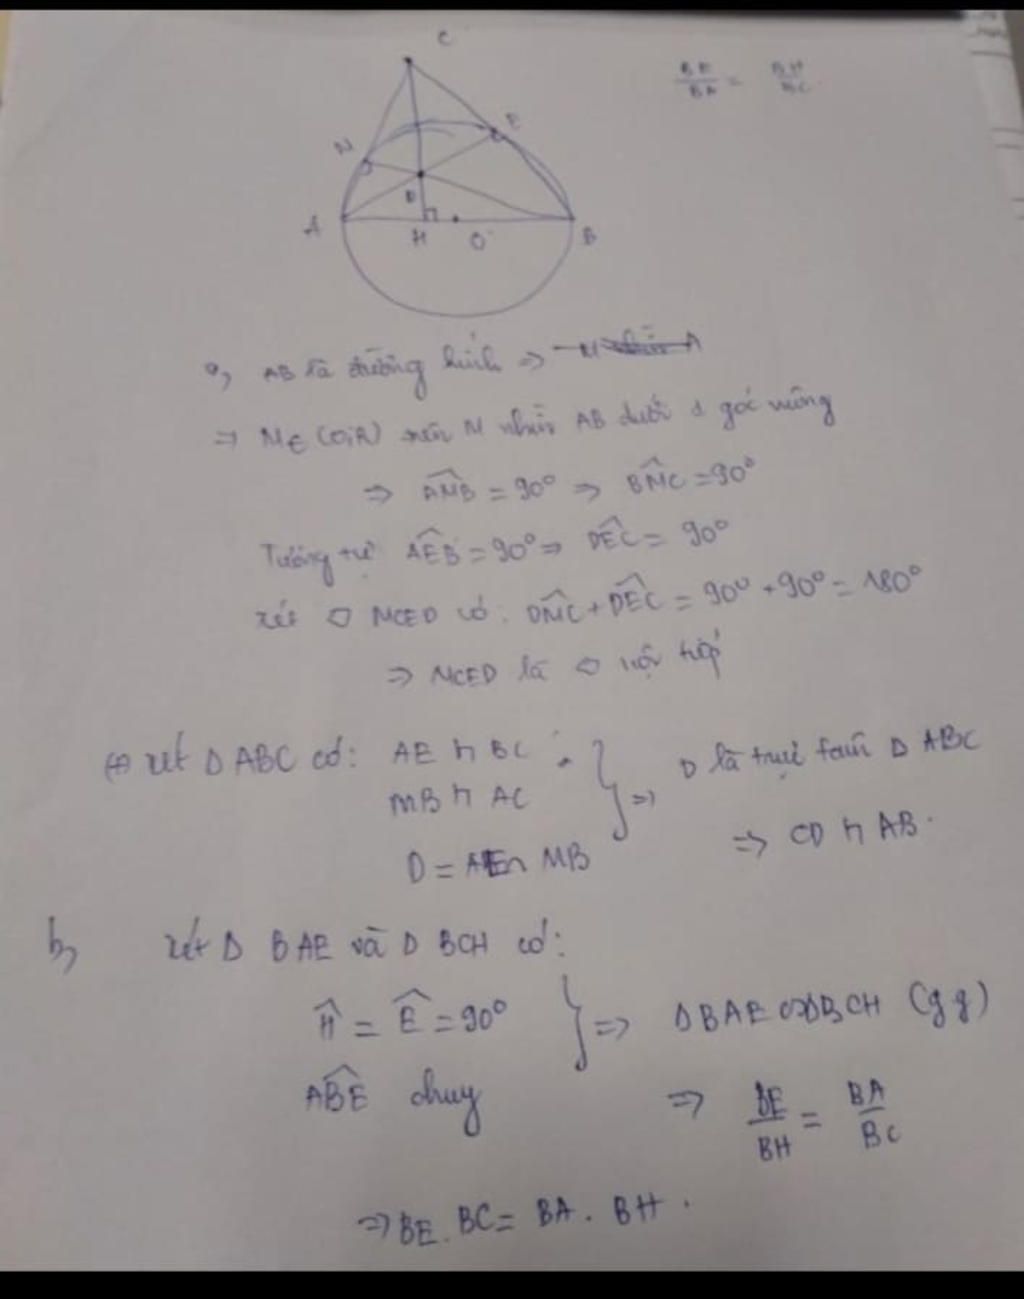 C
BE/BA = BH/BC
M
E
D
A
H
O
B
a, AB là đường kính ⇒
⇒ M∈(O;R) nên M nhìn AB dưới 1 góc vuông
⇒ AMB = 90° ⇒ BMC = 90°
Tương tự AEB = 90° ⇒ DEC = 90°
xét ◇ MCED có: DMC + DEC = 90° + 90° = 180°
⇒ MCED là ◇ nội tiếp
(+) xét Δ ABC có: AE ⊥ BC
MB ⊥ AC
D = AE ∩ MB
} ⇒ D là trực tâm Δ ABC
⇒ CD ⊥ AB.
b, xét Δ BAE và Δ BCH có:
H = E = 90°
ABE chung
} ⇒ ΔBAE ∽ ΔBCH (gg)
⇒ BE/BH = BA/BC
⇒ BE. BC = BA. BH.